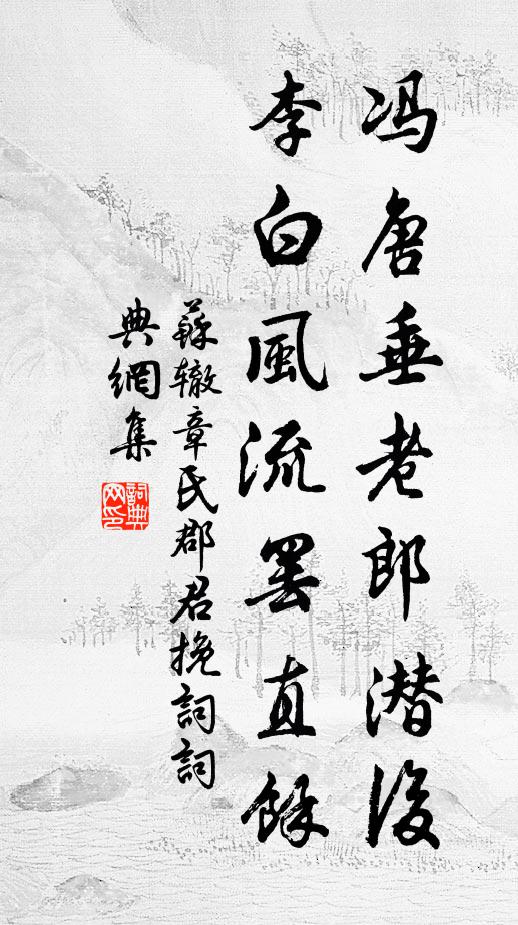 冯唐垂老郎潜後
李白風流罢直餘
蘇辙章氏郡君挽詞詞
典網集
詞典
网印